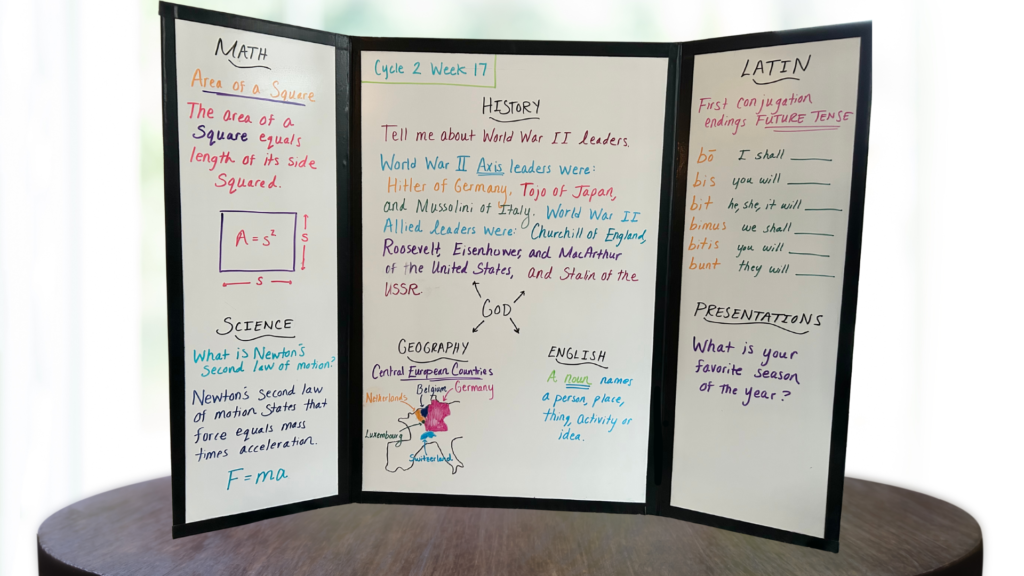 MATH
Area of a Square
The area of a
Square equals
length of its side
Squared.
A = s²
S
S
SCIENCE
What is Newton's
Second law of motion?
Newton's Second law
of motion States that
force equals mass
times acceleration.
F = ma
Cycle 2 Week 17
HISTORY
Tell me about World War II leaders.
World War II Axis leaders were:
Hitler of Germany, Tojo of Japan,
and Mussolini of Italy. World War II
Allied leaders were: Churchill of England,
Roosevelt, Eisenhower, and MacArthur
of the United States, and Stalin of the
USSR.
GOD
GEOGRAPHY
Central European Countries
Belgium
Germany
Netherlands
Luxembourg
Switzerland
ENGLISH
A noun names
a person, place,
thing, activity or
idea.
LATIN
First conjugation
endings FUTURE TENSE
bō I shall ______
bis you will ______
bit he, she, it will ______
bimus we shall ______
bitis you will ______
bunt they will ______
PRESENTATIONS
What is your
favorite season
of the year?